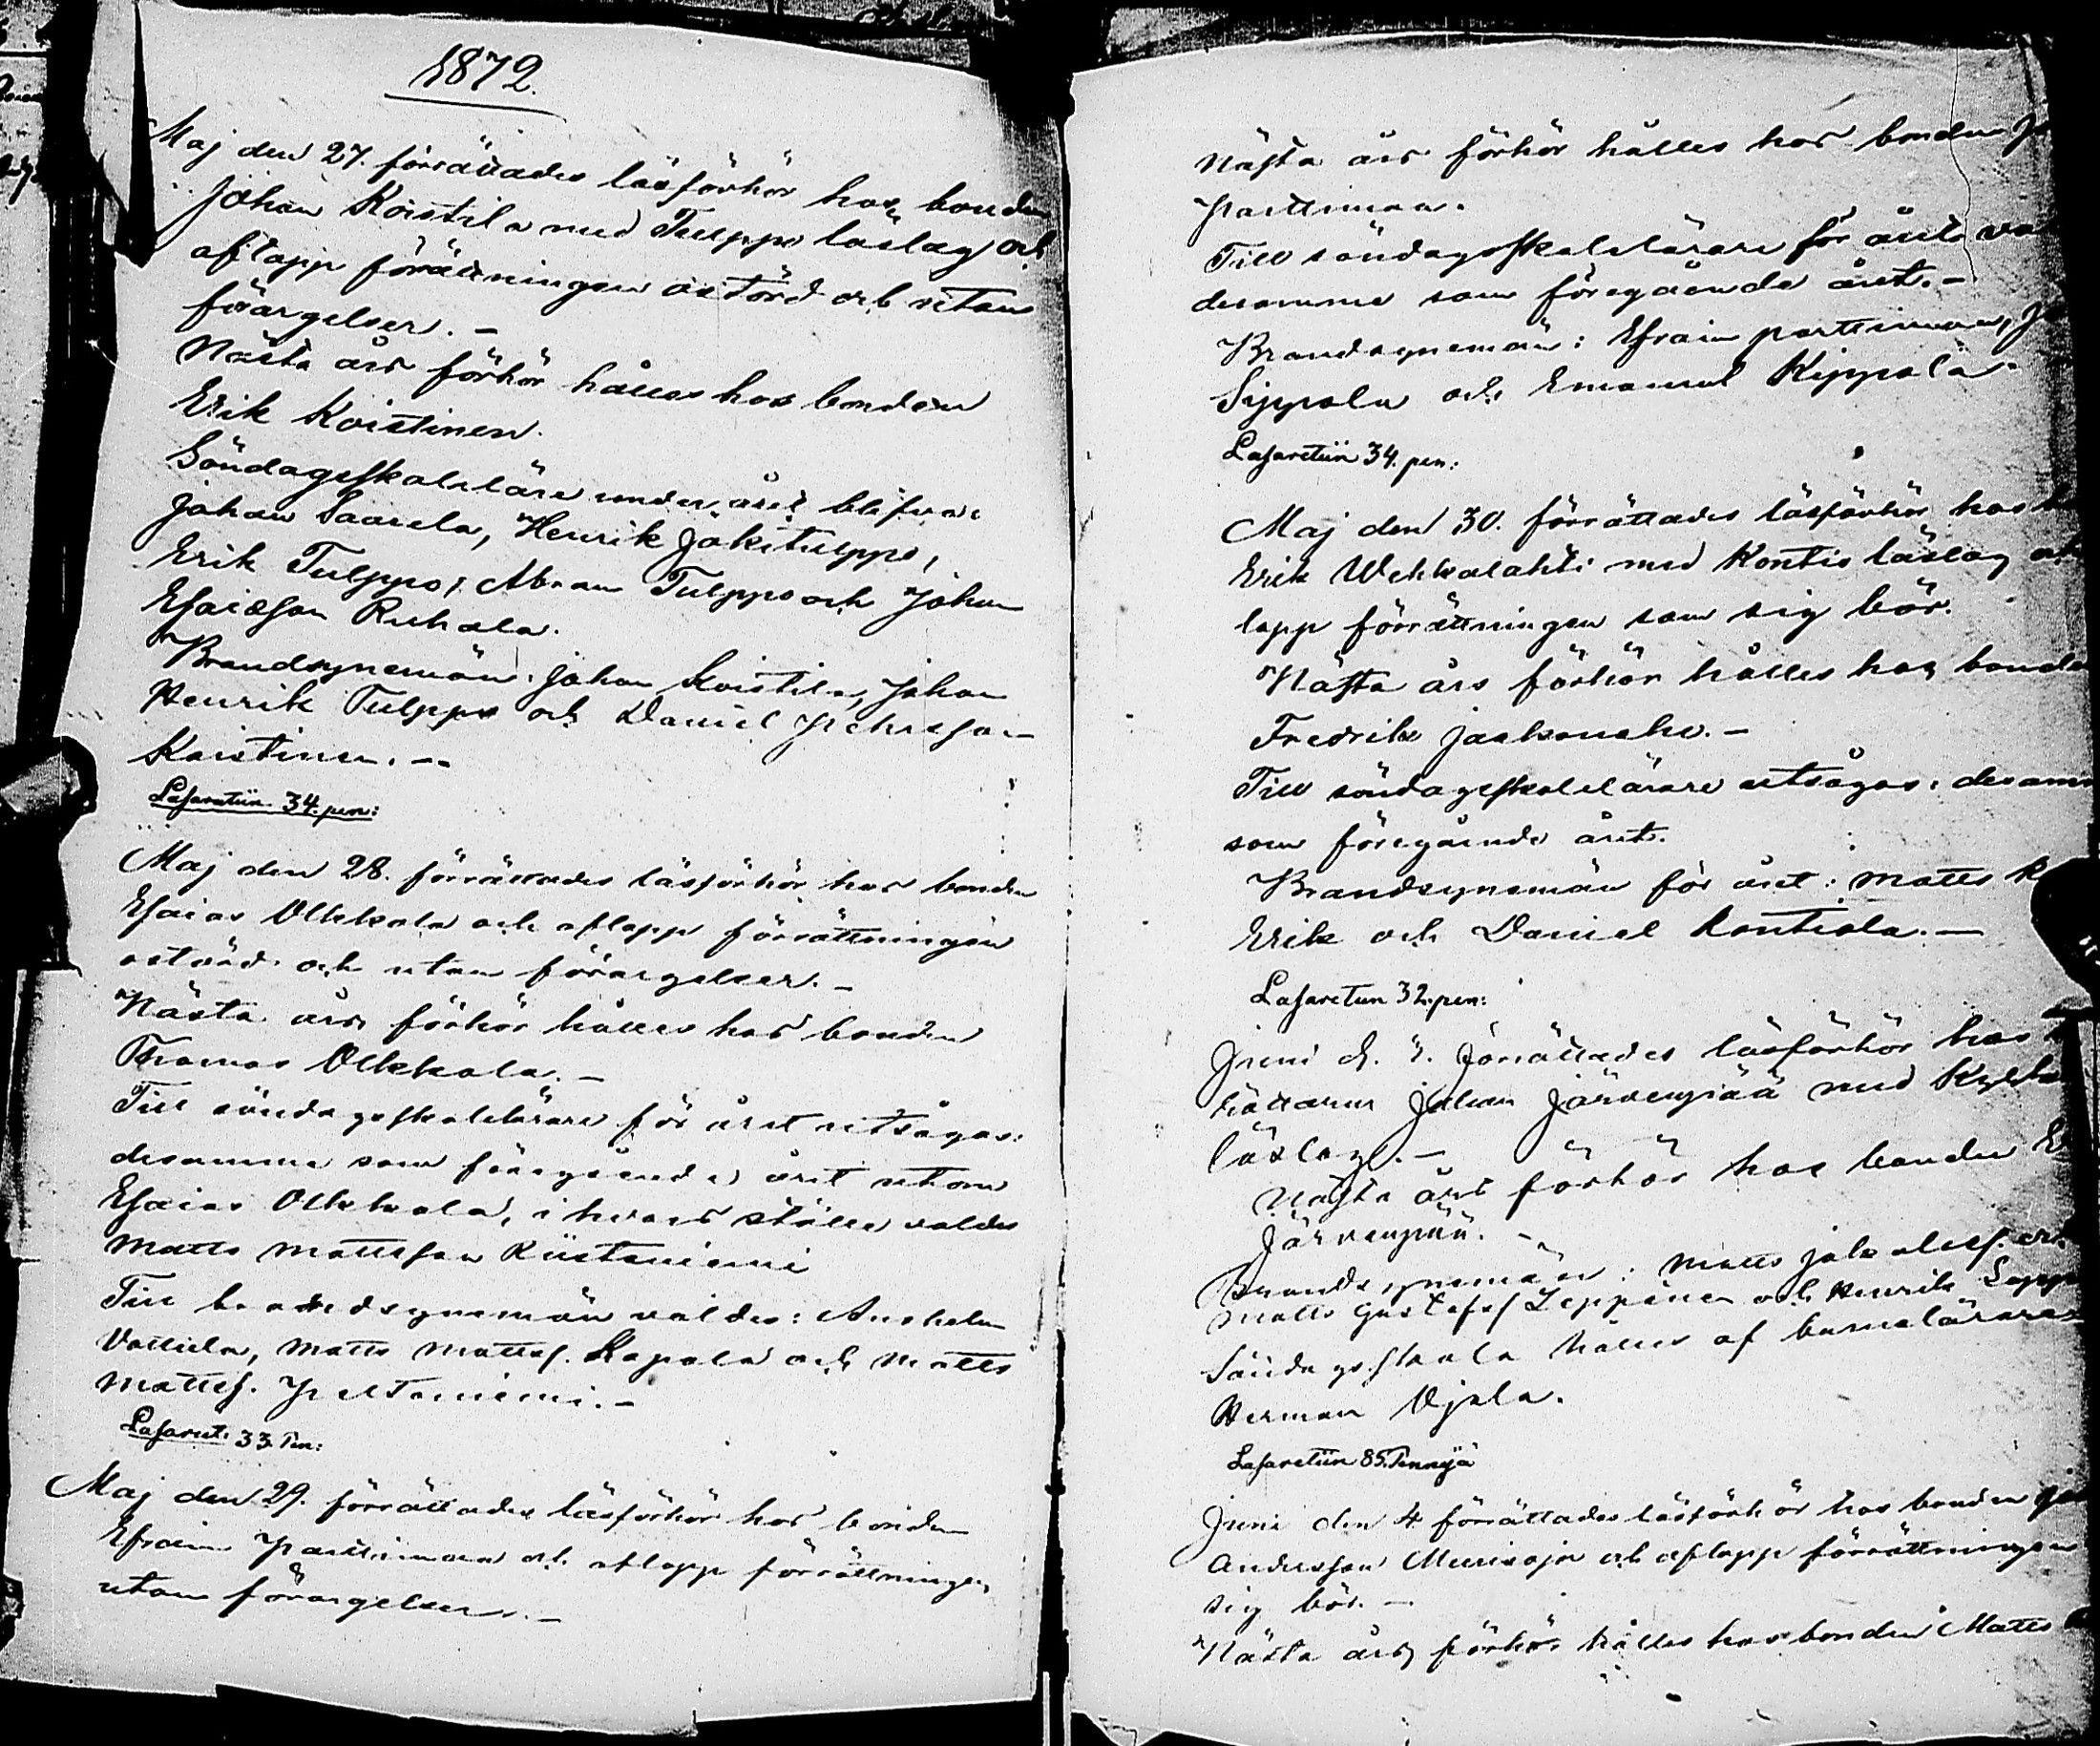 1872.
Maj den 27. förrättades läsförhör hos bonden
Johan Koistila med Tulppo läslag och
aflopp förättningen ostörd och utan
förargelser. –
Nästa års förhör hålles hos bonden
Erik Koistinen.
Söndagsskolelärare under året blifva:
Johan Saarela, Henrik Jokitulppo,
Erik Tulppo, Abram Tulppo och Johan
Esaiasson Ruhala.
Brandsynemän: Johan Koistila, Johan
Henrik Tulppo och Daniel Pehrsson
Koistinen. –
Lasaretiin 34. pen:
Maj den 28. förrättades läsförhör hos bonden
Esaias Olkkola och aflopp förrättningen
ostörd och utan förargelser. –
Nästa års förhör hålles hos bonden
Thomas Olkkola. –
Till söndagsskolelärare för året utsågos:
desamme som föregående året utom
Esaias Olkkola, i hvars ställe valdes
Matts Mattsson Kustaniemi
Till brandsynemän valdes: Anshelm
Matts Mattss. Kapola och Matts
Mattss. Peltoniemi. –
Lasaret. 33. Pen:
Maj den 29. förrättades läsförhör hos bonden
Efraim Parttimaa och aflopp förrättningen
utan förargelser. –
Nästa års förhör hålles hos bonden
Parttimaa.
Till söndagsskolelärare för året
desamme som föregående året. –
Brandsynemän: Efraim Parttimaa,
Sippola och Emanuel Kippola
Lasaretiin 34. pen:
Maj den 30. förrättades läsförhör hos
Erik Wehkalahti med Kontio läslag och
lopp förrättningen som sig bör.
Nästa års förhör hålles hos bonden
Fredrik Jaakonaho. –
Till söndagsskolelärare utsågos: desamme
som föregående året.
Brandsynemän för året: Matts
Erik och Daniel Kontiola. –
Lasaretiin 32. pen:
Juni d. 3. förrättades läsförhör hos
hållaren Johan Järvenpää med
läslag. –
Nästa års förhör hos bonden
Järvenpää. –
Brandsynemän: Matts
Matts Gustafss Leppänen och Henrik
Söndagsskola hålles af barnalärare
Herman Ojala.
Lasaretiin 85. Penniä
Juni den 4 förrättades läsförhör hos bonden
Andersson Mursioja och aflopp förrättningen
sig bör. –
Nästa års förhör hålles hos bonden Matts